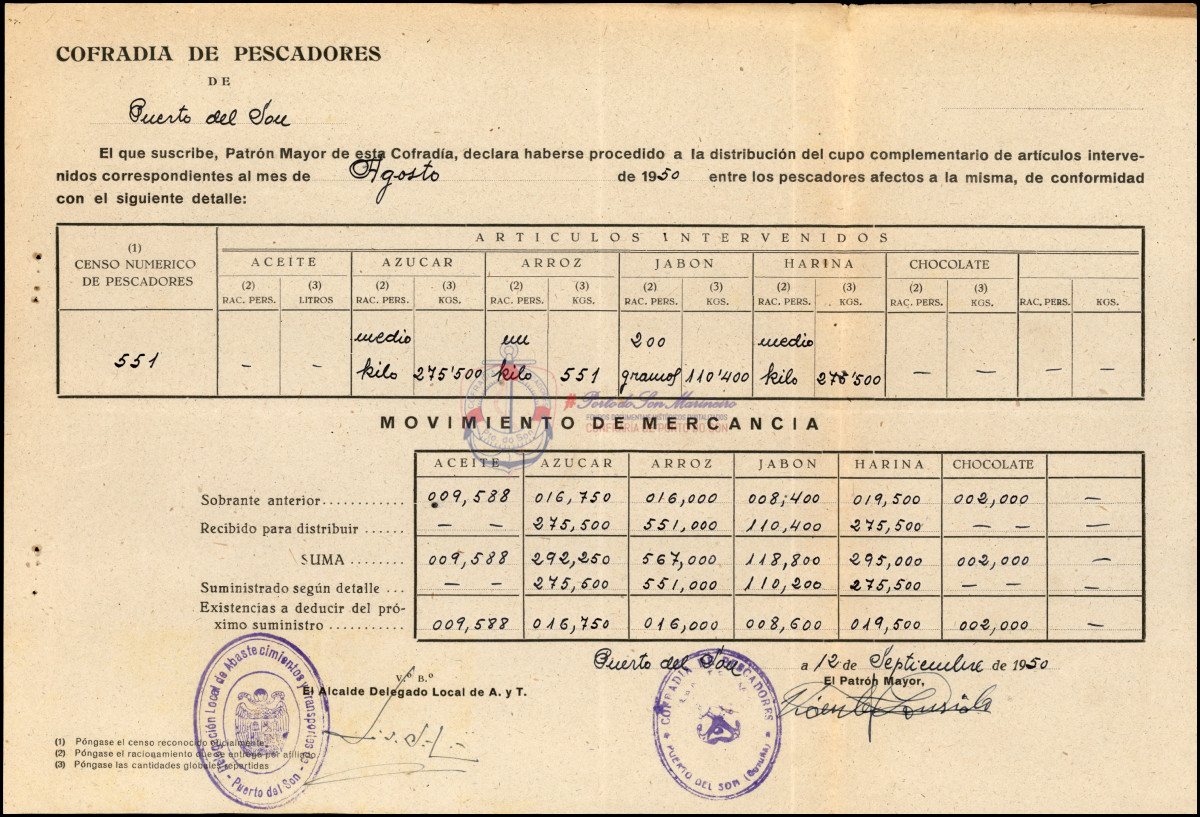 COFRADIA DE PESCADORES
DE
Puerto del Son
El que suscribe, Patrón Mayor de esta Cofradía, declara haberse procedido a la distribución del cupo complementario de artículos interve-
nidos correspondientes al mes de Agosto de 1950 entre los pescadores afectos a la misma, de conformidad
con el siguiente detalle:
ARTICULOS INTERVENIDOS
(1) CENSO NUMERICO DE PESCADORES
ACEITE AZUCAR ARROZ JABON HARINA CHOCOLATE
(2) (3) (2) (3) (2) (3) (2) (3) (2) (3) (2) (3)
RAC. PERS. LITROS RAC. PERS. KGS. RAC. PERS. KGS. RAC. PERS. KGS. RAC. PERS. KGS. RAC. PERS. KGS. RAC. PERS. KGS.
medio un 200 medio
551 - - kilo 275'500 kilo 551 gramos 110'400 kilo 275'500 — — — —
#Porto do Son Marineiro
CONFRARÍA DE PORTO DO SON
Pto. do Son
MOVIMIENTO DE MERCANCIA
ACEITE AZUCAR ARROZ JABON HARINA CHOCOLATE
Sobrante anterior 009,588 016,750 016,000 008,400 019,500 002,000 —
Recibido para distribuir — — 275,500 551,000 110,400 275,500 — — —
SUMA 009,588 292,250 567,000 118,800 295,000 002,000 —
Suministrado según detalle — — 275,500 551,000 110,200 275,500 — — —
Existencias a deducir del pró-
ximo suministro 009,588 016,750 016,000 008,600 019,500 002,000 —
Puerto del Son a 12 de Septiembre de 1950
V.º B.º
El Alcalde Delegado Local de A. y T.
El Patrón Mayor,
Delegación Local de Abastecimientos y Transportes
- Puerto del Son -
COFRADIA DE PESCADORES
PUERTO DEL SON (Coruña)
(1) Póngase el censo reconocido oficialmente.
(2) Póngase el racionamiento que se entrega por afiliado.
(3) Póngase las cantidades globales repartidas